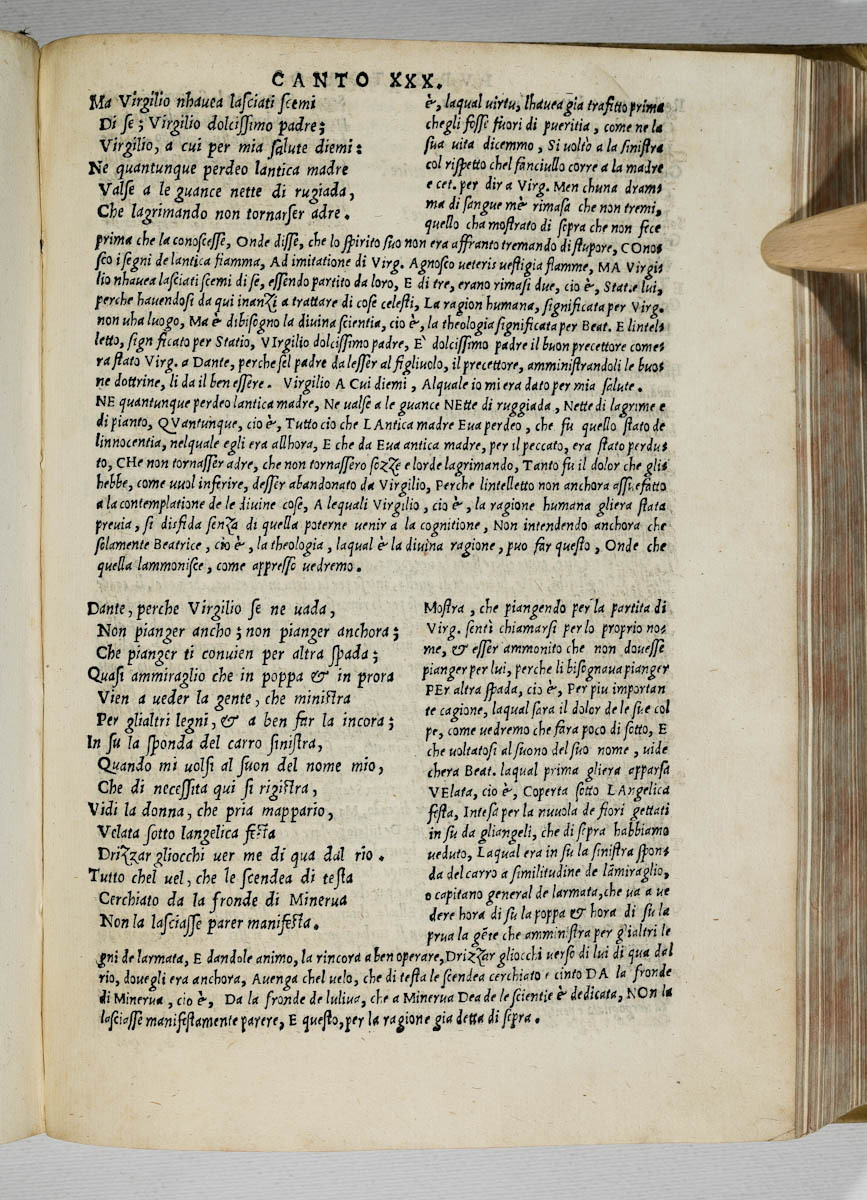 CANTO XXX.
Ma Virgilio nhauea lasciati scemi
Di se; Virgilio dolcissimo padre;
Virgilio, a cui per mia salute diemi:
Ne quantunque perdeo lantica madre
Valse a le guance nette di rugiada,
Che lagrimando non tornasser adre.
è, laqual uirtu, lhauea gia trafitto prima
chegli fosse fuori di pueritia, come ne la
sua uita dicemmo, Si uoltò a la sinistra
col rispetto chel fanciullo corre a la madre
e cet. per dir a Virg. Men chuna dram-
ma di sangue mè rimasa che non tremi,
quello cha mostrato di sopra che non fece
prima che la conoscesse, Onde disse, che lo spirito suo non era affranto tremando di stupore, COnos
sco i segni de lantica fiamma, Ad imitatione di Virg. Agnosco ueteris uestigia flamme, MA Virgi-
lio nhauea lasciati scemi di se, essendo partito da loro, E di tre, erano rimasi due, cio è, Stat. e lui,
perche hauendosi da qui inanzi a trattare di cose celesti, La ragion humana, significata per Virg.
non uha luogo, Ma è dibisogno la diuina scientia, cio è, la theologia significata per Beat. E lintel-
letto, significato per Statio, VIrgilio dolcissimo padre, E' dolcissimo padre il buon precettore come-
ra stato Virg. a Dante, perche sel padre da lesser al figliuolo, il precettore, amministrandoli le buo-
ne dottrine, li da il ben essere. Virgilio A Cui diemi, Alquale io mi era dato per mia salute.
NE quantunque perdeo lantica madre, Ne ualse a le guance NEtte di ruggiada, Nette di lagrime e
di pianto, QVantunque, cio è, Tutto cio che LAntica madre Eua perdeo, che fu quello stato de
linnocentia, nelquale egli era allhora, E che da Eua antica madre, per il peccato, era stato perdu-
to, CHe non tornasser adre, che non tornassero sozze e lorde lagrimando, Tanto fu il dolor che gli
hebbe, come uuol inferire, desser abandonato da Virgilio, Perche lintelletto non anchora assuefatto
a la contemplatione de le diuine cose, A lequali Virgilio, cio è, la ragione humana gliera stata
preuia, si disfida senza di quella poterne uenir a la cognitione, Non intendendo anchora che
solamente Beatrice, cio è, la theologia, laqual è la diuina ragione, puo far questo, Onde che
quella lammonisce, come appresso uedremo.
Dante, perche Virgilio se ne uada,
Non pianger ancho; non pianger anchora;
Che pianger ti conuien per altra spada;
Quasi ammiraglio che in poppa & in prora
Vien a ueder la gente, che ministra
Per glialtri legni, & a ben far la incora;
In su la sponda del carro sinistra,
Quando mi uolsi al suon del nome mio,
Che di necessita qui si rigistra,
Vidi la donna, che pria mappario,
Velata sotto langelica festa
Drizzar gliocchi uer me di qua dal rio.
Tutto chel uel, che le scendea di testa
Cerchiato da la fronde di Minerua
Non la lasciasse parer manifesta.
Mostra, che piangendo per la partita di
Virg. sentì chiamarsi per lo proprio no-
me, & esser ammonito che non douesse
pianger per lui, perche li bisognaua pianger
PEr altra spada, cio è, Per piu importan
te cagione, laqual sara il dolor de le sue col
pe, come uedremo che fara poco di sotto, E
che uoltatosi al suono del suo nome, uide
chera Beat. laqual prima gliera apparsa
VElata, cio è, Coperta sotto LAngelica
festa, Intesa per la nuuola de fiori gettati
in su da gliangeli, che di sopra habbiamo
ueduto, Laqual era in su la sinistra spon-
da del carro a similitudine de lamiraglio,
o capitano general de larmata, che ua a ue
dere hora di su la poppa & hora di su la
prua la gẽte che amministra per glialtri le
gni de larmata, E dandole animo, la rincora a ben operare, Drizzar gliocchi uerso di lui di qua dal
rio, douegli era anchora, Auenga chel uelo, che di testa le scendea cerchiato e cinto DA la fronde
di Minerua, cio è, Da la fronde de luliua, che a Minerua Dea de le scientie è dedicata, NOn la
lasciasse manifestamente parere, E questo, per la ragione gia detta di sopra.